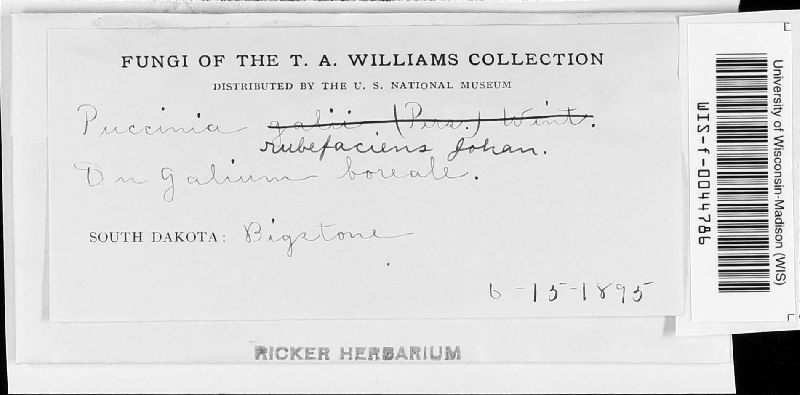 FUNGI OF THE T. A. WILLIAMS COLLECTION
DISTRIBUTED BY THE U. S. NATIONAL MUSEUM
Puccinia galii (Pers.) Wint.
rubefaciens Johan.
On Galium boreale.
SOUTH DAKOTA: Bigstone
6-15-1895
RICKER HERBARIUM
University of Wisconsin-Madison (WIS)
WIS-f-0044786